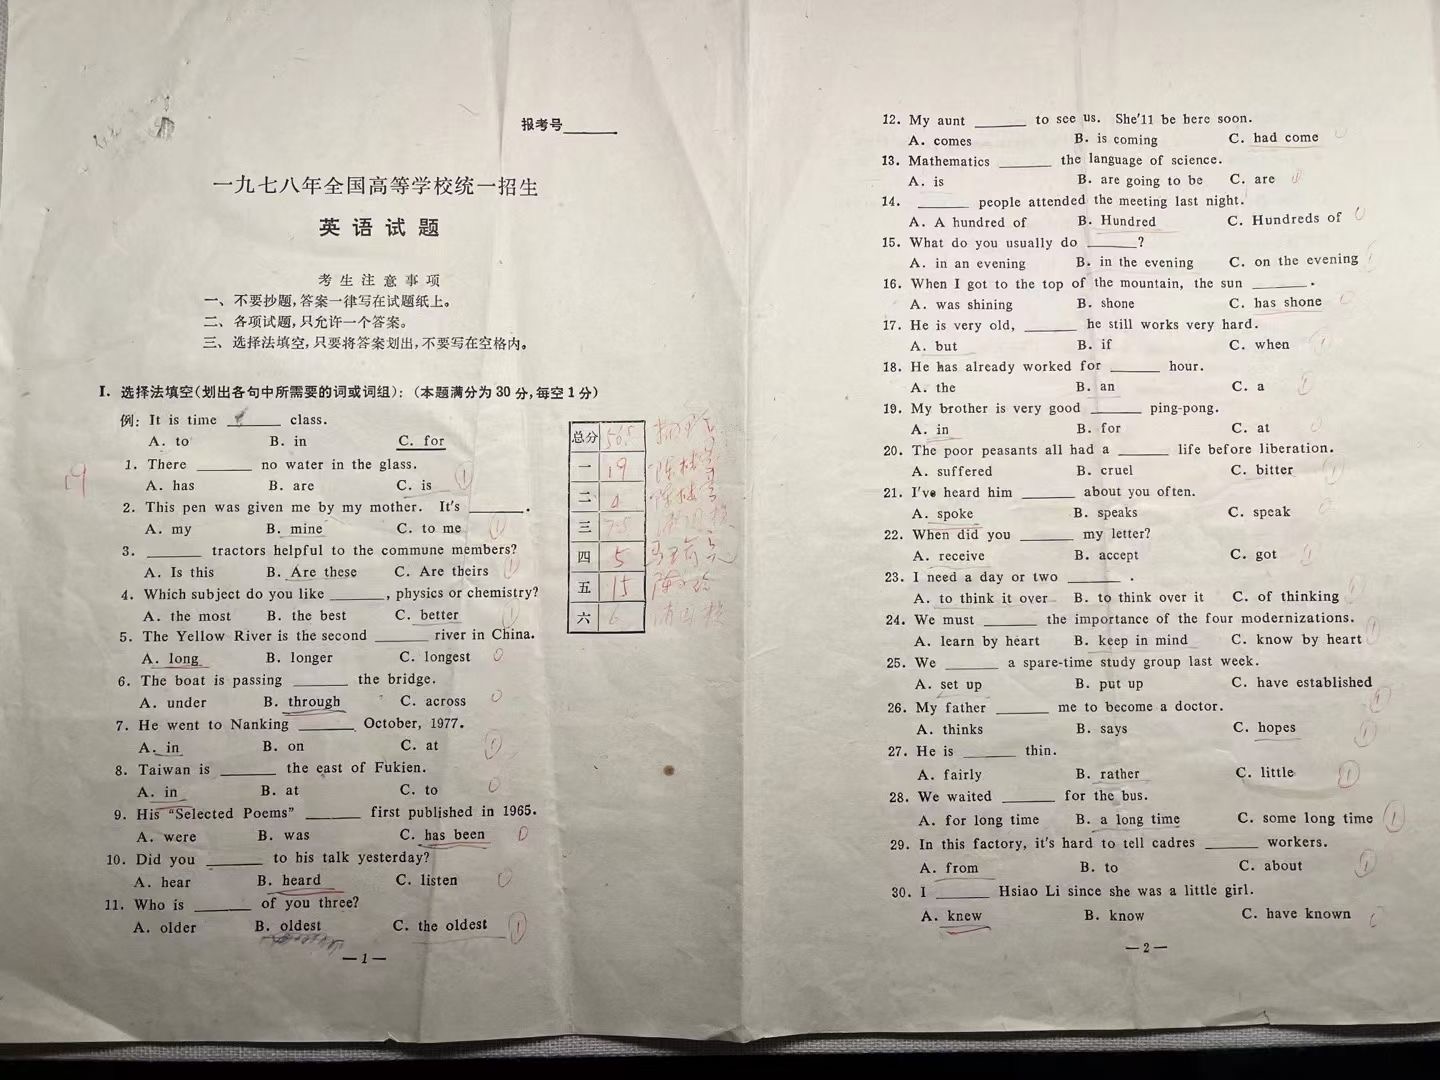 报考号______
一九七八年全国高等学校统一招生
英语试题
考生注意事项
一、不要抄题,答案一律写在试题纸上。
二、各项试题,只允许一个答案。
三、选择法填空,只要将答案划出,不要写在空格内。
I. 选择法填空(划出各句中所需要的词或词组):(本题满分为30分,每空1分)
例: It is time ______ class.
A. to B. in C. for
1. There ______ no water in the glass.
A. has B. are C. is
2. This pen was given me by my mother. It's ______.
A. my B. mine C. to me
3. ______ tractors helpful to the commune members?
A. Is this B. Are these C. Are theirs
4. Which subject do you like ______, physics or chemistry?
A. the most B. the best C. better
5. The Yellow River is the second ______ river in China.
A. long B. longer C. longest
6. The boat is passing ______ the bridge.
A. under B. through C. across
7. He went to Nanking ______ October, 1977.
A. in B. on C. at
8. Taiwan is ______ the east of Fukien.
A. in B. at C. to
9. His "Selected Poems" ______ first published in 1965.
A. were B. was C. has been
10. Did you ______ to his talk yesterday?
A. hear B. heard C. listen
11. Who is ______ of you three?
A. older B. oldest C. the oldest
—1—
19
总分 56.5
一 19
二 4
三 7.5
四 5
五 15
六 6
12. My aunt ______ to see us. She'll be here soon.
A. comes B. is coming C. had come
13. Mathematics ______ the language of science.
A. is B. are going to be C. are
14. ______ people attended the meeting last night.
A. A hundred of B. Hundred C. Hundreds of
15. What do you usually do ______?
A. in an evening B. in the evening C. on the evening
16. When I got to the top of the mountain, the sun ______.
A. was shining B. shone C. has shone
17. He is very old, ______ he still works very hard.
A. but B. if C. when
18. He has already worked for ______ hour.
A. the B. an C. a
19. My brother is very good ______ ping-pong.
A. in B. for C. at
20. The poor peasants all had a ______ life before liberation.
A. suffered B. cruel C. bitter
21. I've heard him ______ about you often.
A. spoke B. speaks C. speak
22. When did you ______ my letter?
A. receive B. accept C. got
23. I need a day or two ______.
A. to think it over B. to think over it C. of thinking
24. We must ______ the importance of the four modernizations.
A. learn by heart B. keep in mind C. know by heart
25. We ______ a spare-time study group last week.
A. set up B. put up C. have established
26. My father ______ me to become a doctor.
A. thinks B. says C. hopes
27. He is ______ thin.
A. fairly B. rather C. little
28. We waited ______ for the bus.
A. for long time B. a long time C. some long time
29. In this factory, it's hard to tell cadres ______ workers.
A. from B. to C. about
30. I ______ Hsiao Li since she was a little girl.
A. knew B. know C. have known
—2—